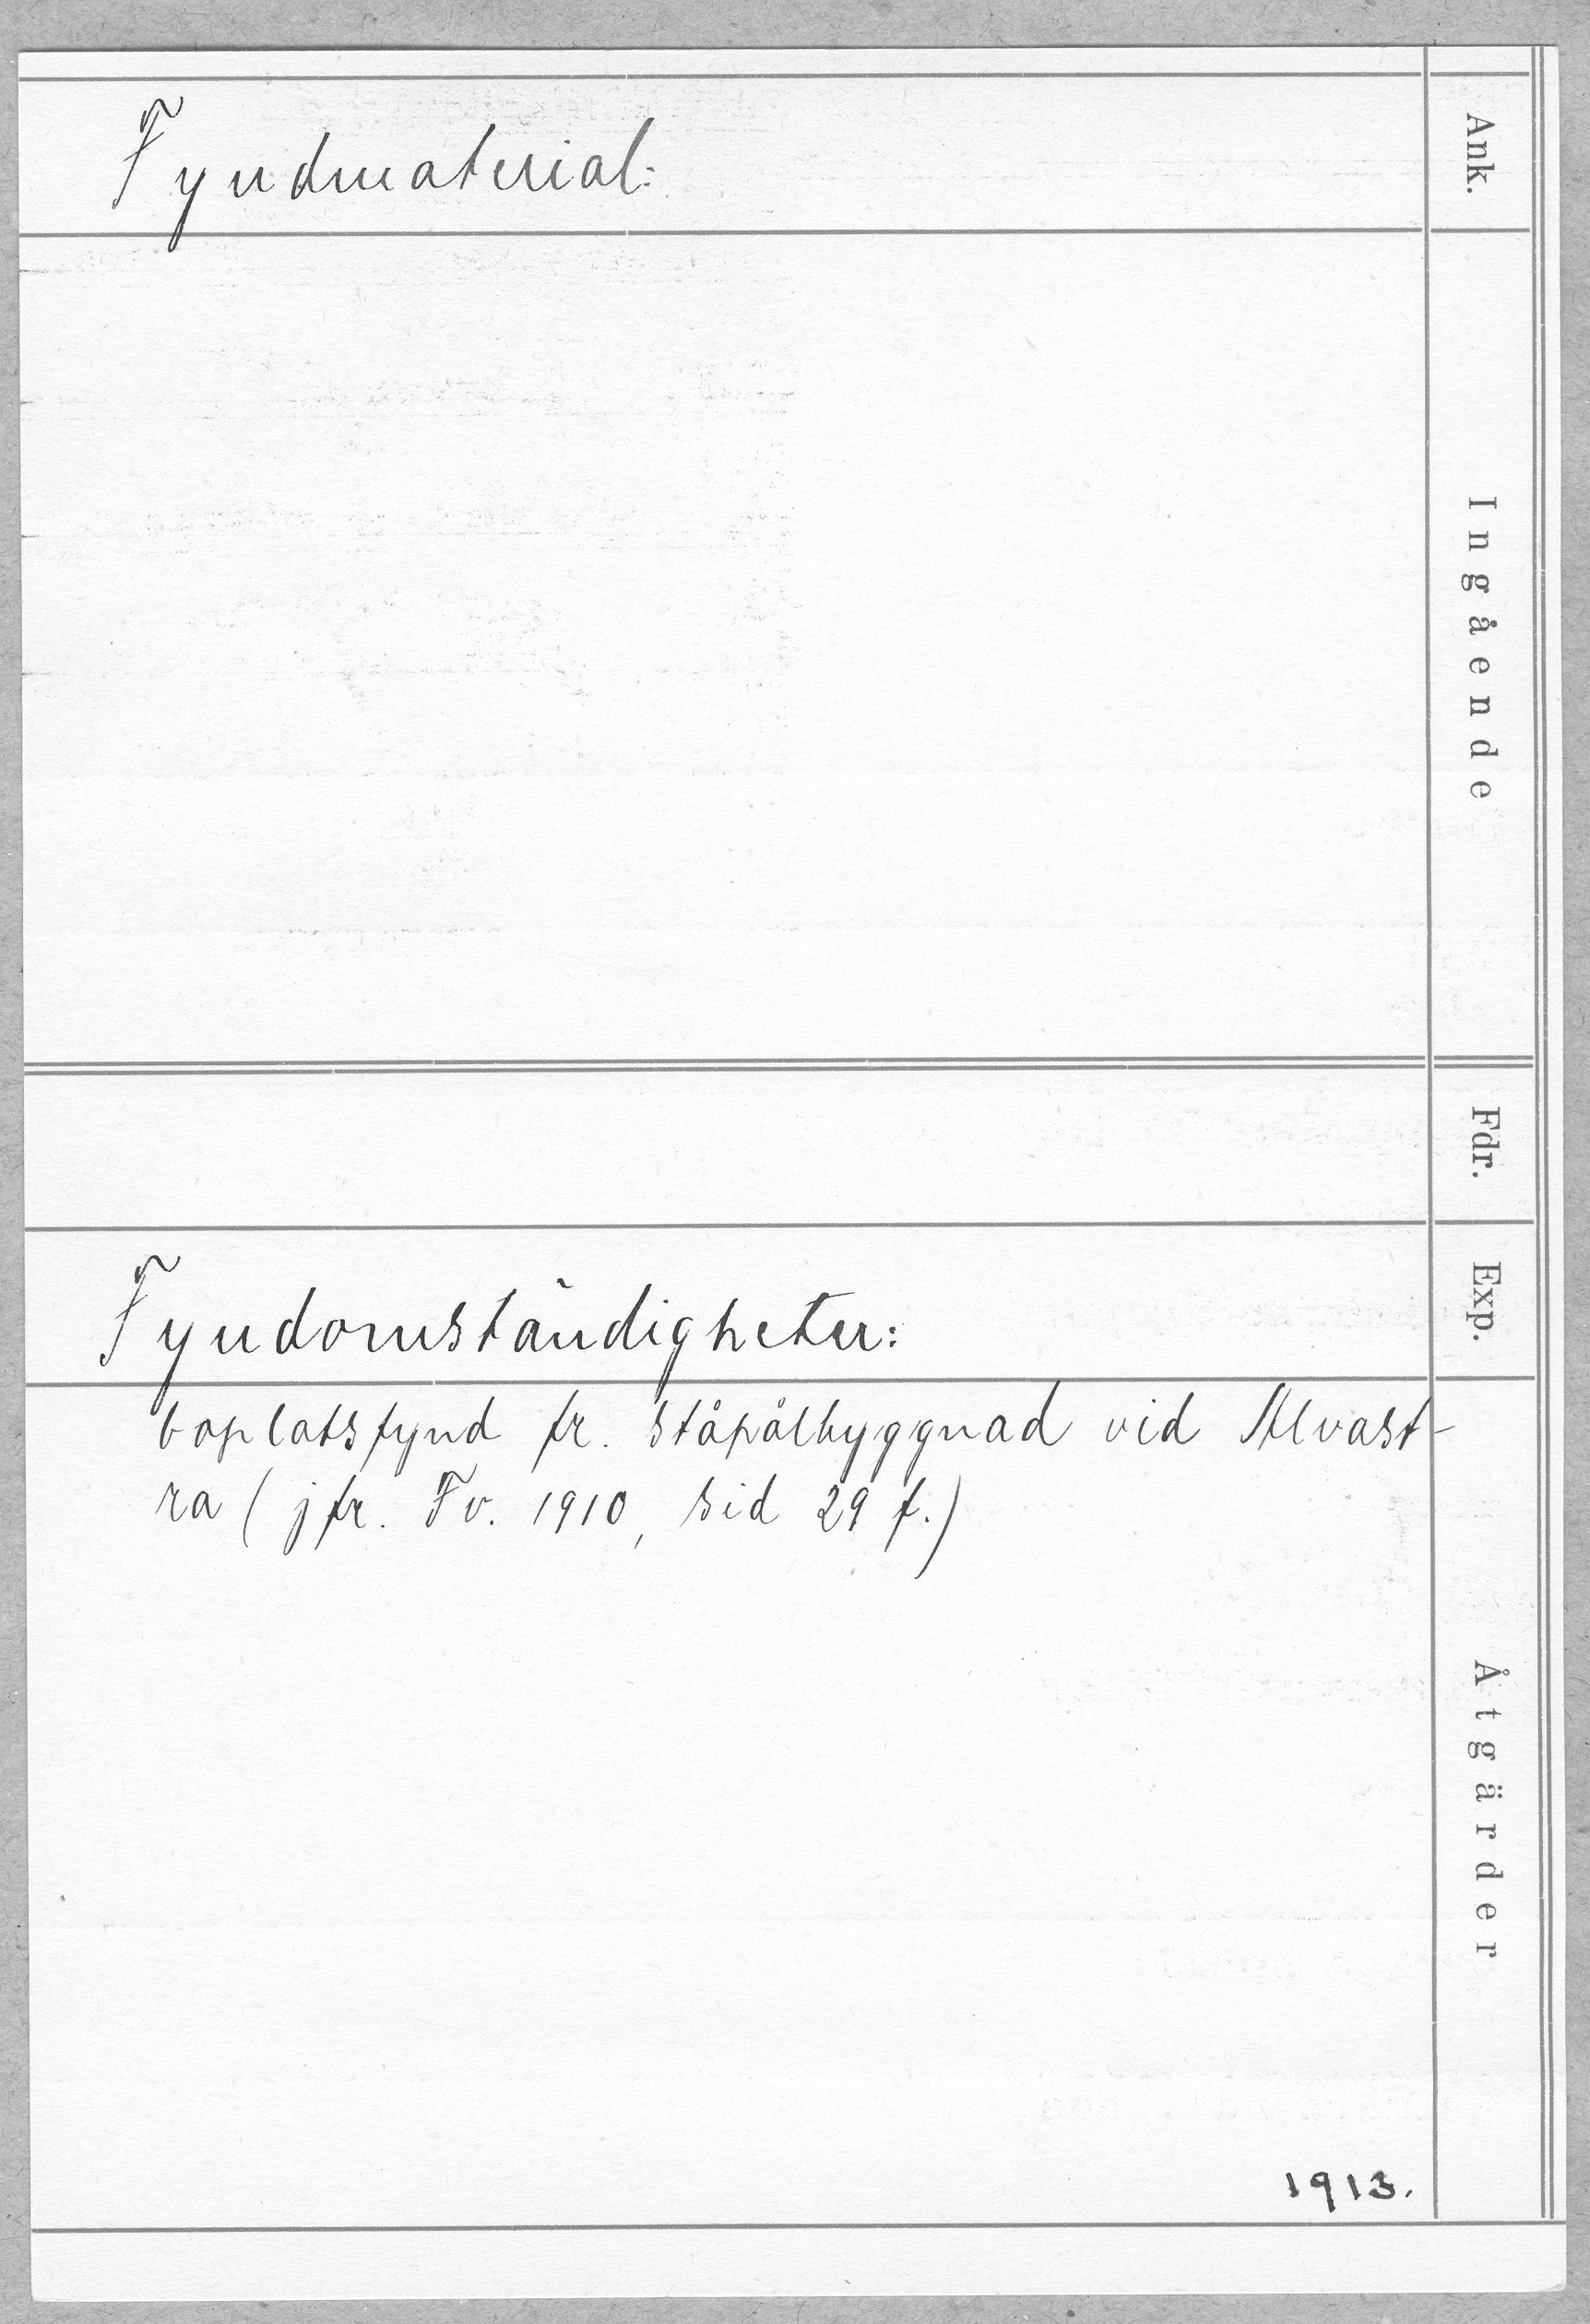 Fyndmaterial:
Ank.
Ingående
Fdr.
Exp.
Fyndomständigheter:
boplatsfynd fr. ståpålbyggnad vid Alvast-
ra (jfr. Fv. 1910, sid 29 f.)
Åtgärder
1913.